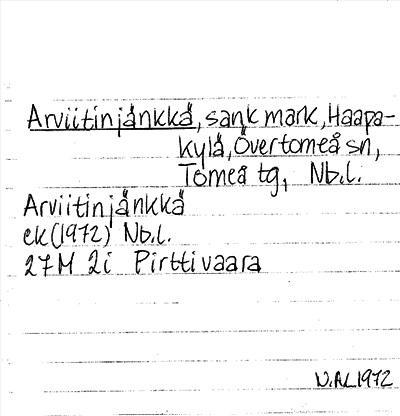 Arviitinjånkkå, sank mark, Haapa-
kylå, Övertorneå sn,
Torneå tg, Nb.l.
Arviitinjånkkå
ek (1972) Nb.l.
27M 2i Pirttivaara
1972